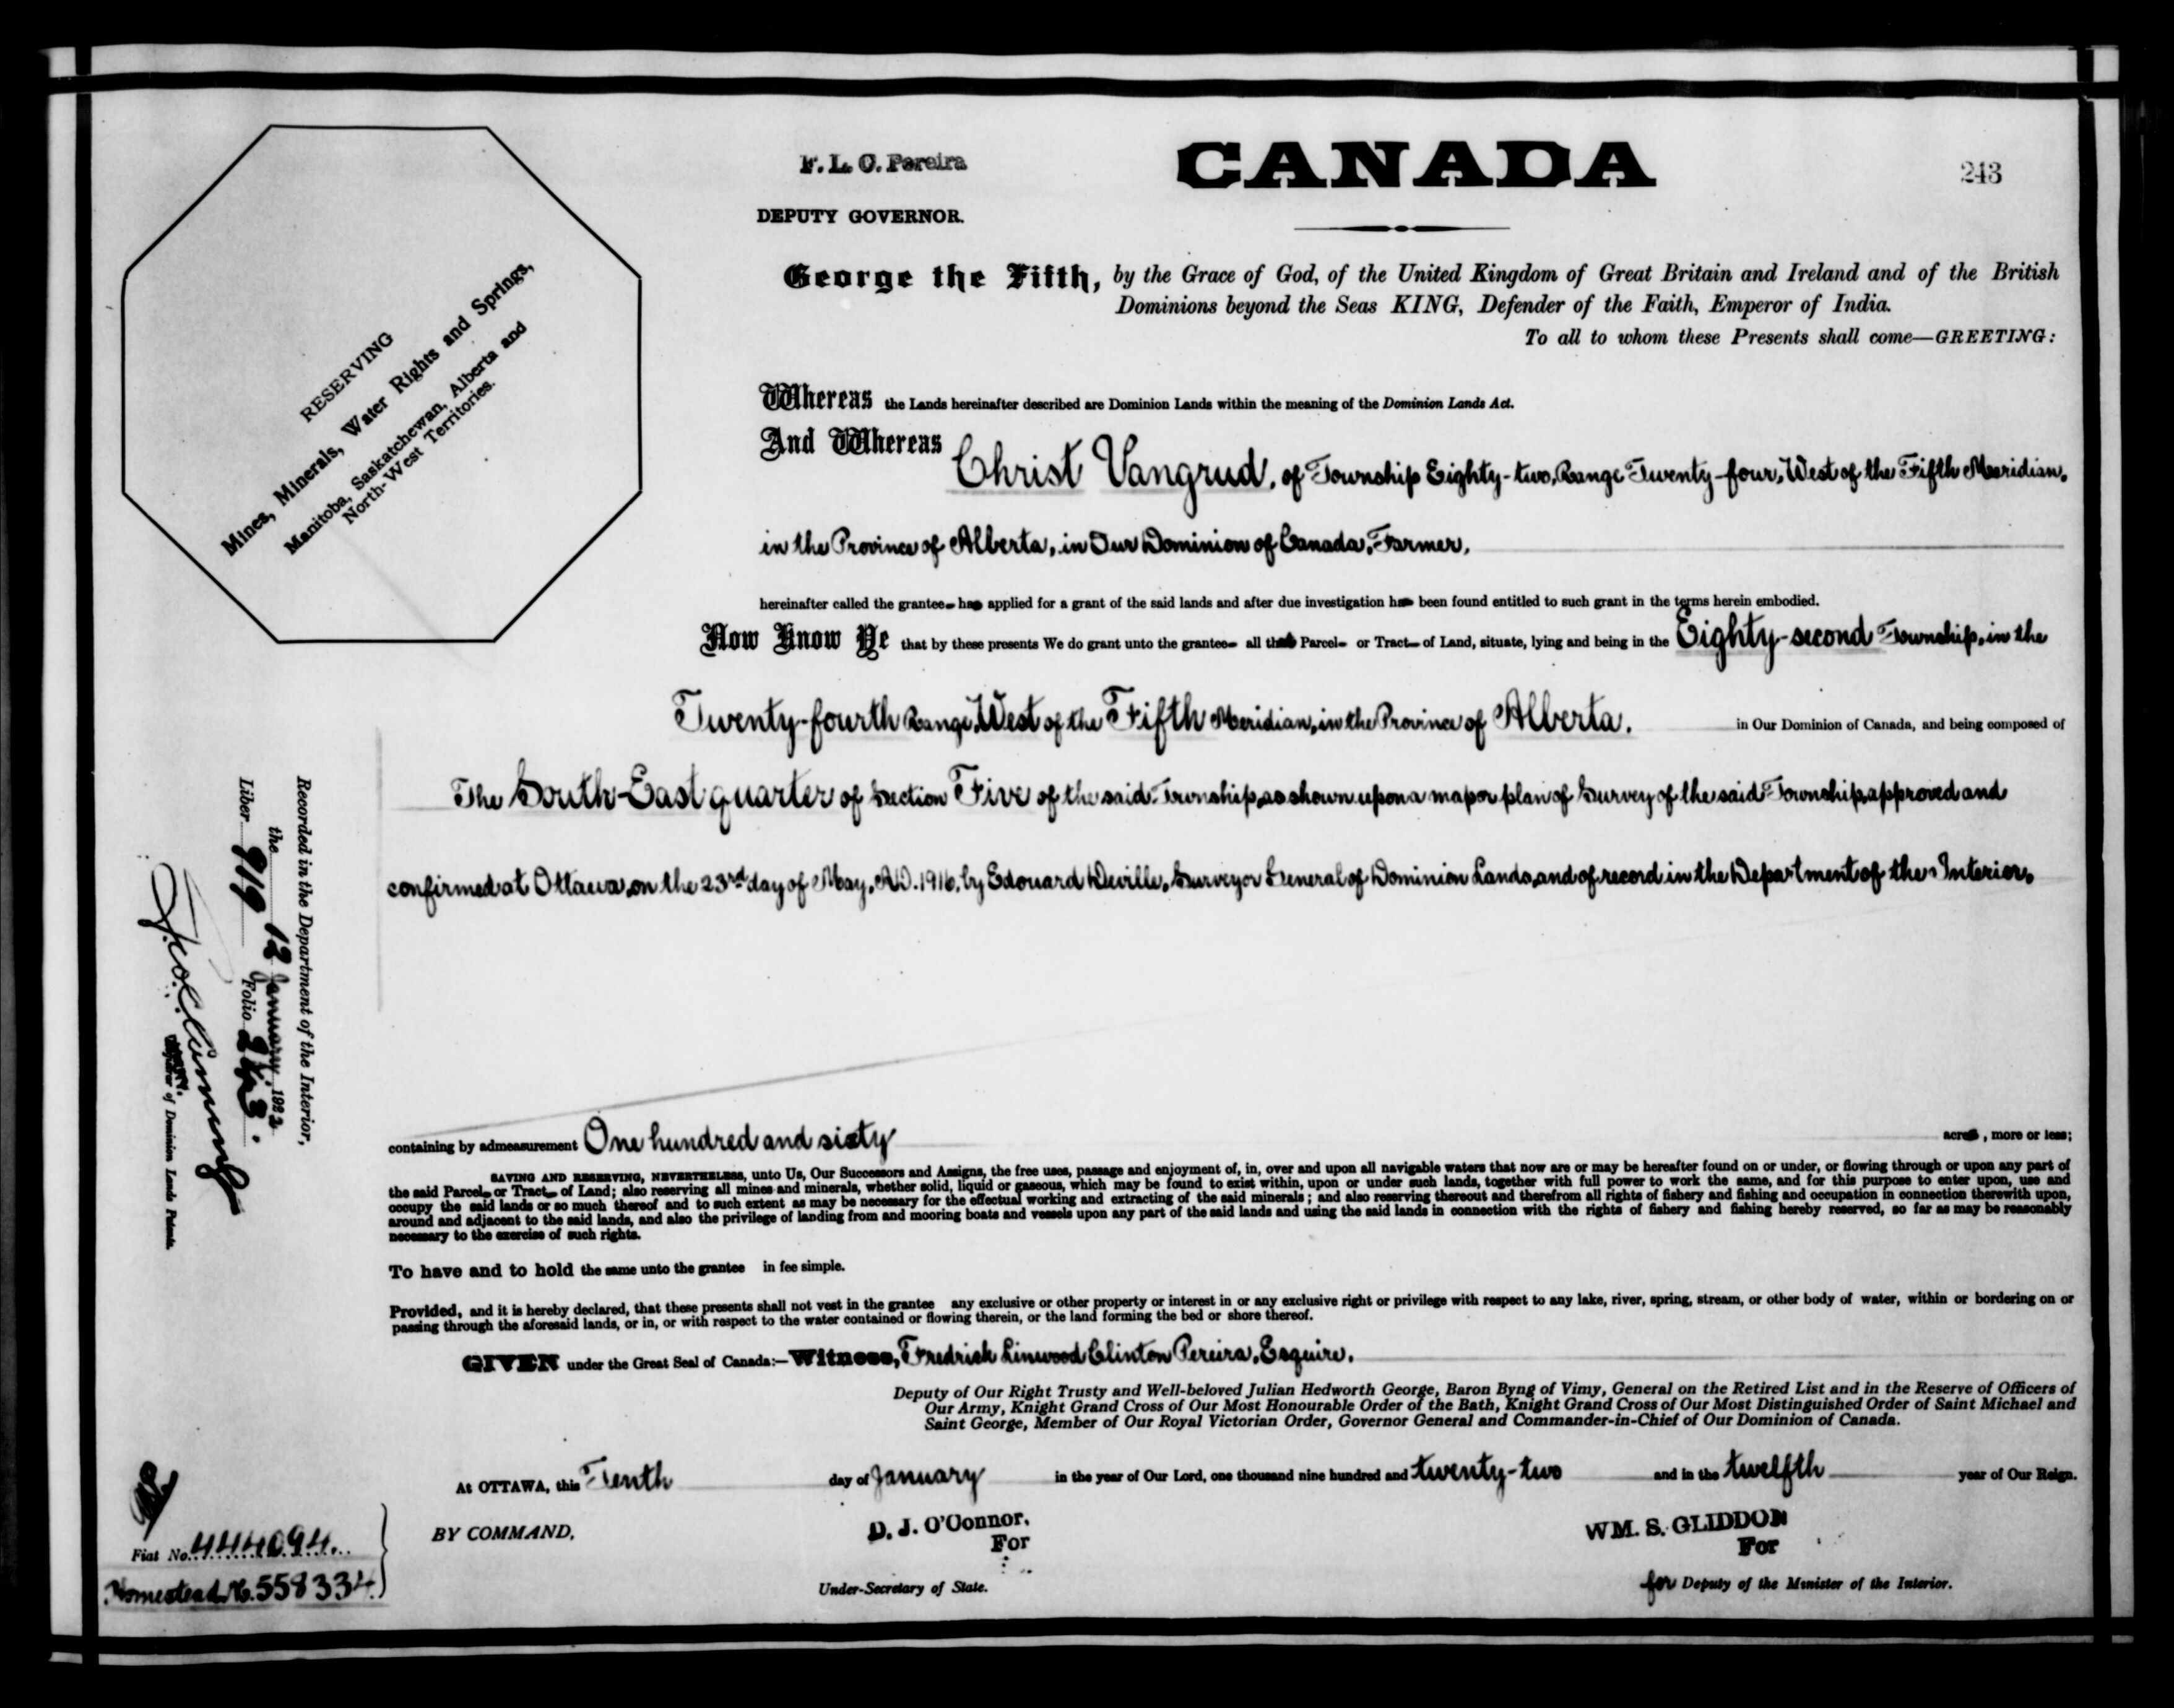 F. L. C. Pereira
DEPUTY GOVERNOR.
CANADA
243
RESERVING
Mines, Minerals, Water Rights and Springs,
Manitoba, Saskatchewan, Alberta and
North-West Territories.
George the Fifth, by the Grace of God, of the United Kingdom of Great Britain and Ireland and of the British
Dominions beyond the Seas KING, Defender of the Faith, Emperor of India.
To all to whom these Presents shall come—GREETING:
Whereas the Lands hereinafter described are Dominion Lands within the meaning of the Dominion Lands Act.
And Whereas Christ Vangrud, of Township Eighty-two, Range Twenty-four, West of the Fifth Meridian,
in the Province of Alberta, in Our Dominion of Canada, Farmer,
hereinafter called the grantee has applied for a grant of the said lands and after due investigation has been found entitled to such grant in the terms herein embodied.
Now Know Ye that by these presents We do grant unto the grantee all that Parcel or Tract of Land, situate, lying and being in the Eighty-second Township, in the
Twenty-fourth Range, West of the Fifth Meridian, in the Province of Alberta, in Our Dominion of Canada, and being composed of
The South-East quarter of Section Five of the said Township, as shown upon a map or plan of Survey of the said Township, approved and
confirmed at Ottawa, on the 23rd day of May, A.D. 1916, by Edouard Deville, Surveyor General of Dominion Lands, and of record in the Department of the Interior,
containing by admeasurement One hundred and sixty acres, more or less;
SAVING AND RESERVING, NEVERTHELESS, unto Us, Our Successors and Assigns, the free uses, passage and enjoyment of, in, over and upon all navigable waters that now are or may be hereafter found on or under, or flowing through or upon any part of
the said Parcel or Tract of Land; also reserving all mines and minerals, whether solid, liquid or gaseous, which may be found to exist within, upon or under such lands, together with full power to work the same, and for this purpose to enter upon, use and
occupy the said lands or so much thereof and to such extent as may be necessary for the effectual working and extracting of the said minerals; and also reserving thereout and therefrom all rights of fishery and fishing and occupation in connection therewith upon,
around and adjacent to the said lands, and also the privilege of landing from and mooring boats and vessels upon any part of the said lands and using the said lands in connection with the rights of fishery and fishing hereby reserved, so far as may be reasonably
necessary to the exercise of such rights.
To have and to hold the same unto the grantee in fee simple.
Provided, and it is hereby declared, that these presents shall not vest in the grantee any exclusive or other property or interest in or any exclusive right or privilege with respect to any lake, river, spring, stream, or other body of water, within or bordering on or
passing through the aforesaid lands, or in, or with respect to the water contained or flowing therein, or the land forming the bed or shore thereof.
GIVEN under the Great Seal of Canada:—Witness, Fredrick Linwood Clinton Pereira, Esquire,
Deputy of Our Right Trusty and Well-beloved Julian Hedworth George, Baron Byng of Vimy, General on the Retired List and in the Reserve of Officers of
Our Army, Knight Grand Cross of Our Most Honourable Order of the Bath, Knight Grand Cross of Our Most Distinguished Order of Saint Michael and
Saint George, Member of Our Royal Victorian Order, Governor General and Commander-in-Chief of Our Dominion of Canada.
At OTTAWA, this Tenth day of January in the year of Our Lord, one thousand nine hundred and twenty-two and in the twelfth year of Our Reign.
BY COMMAND,
D. J. O'Connor,
For
Under-Secretary of State.
WM. S. GLIDDON
For
for Deputy of the Minister of the Interior.
Recorded in the Department of the Interior,
the 12 January 1922
Liber 919 Folio 243.
of Dominion Lands Patents.
Fiat No. 444094.
Homestead No. 558334.